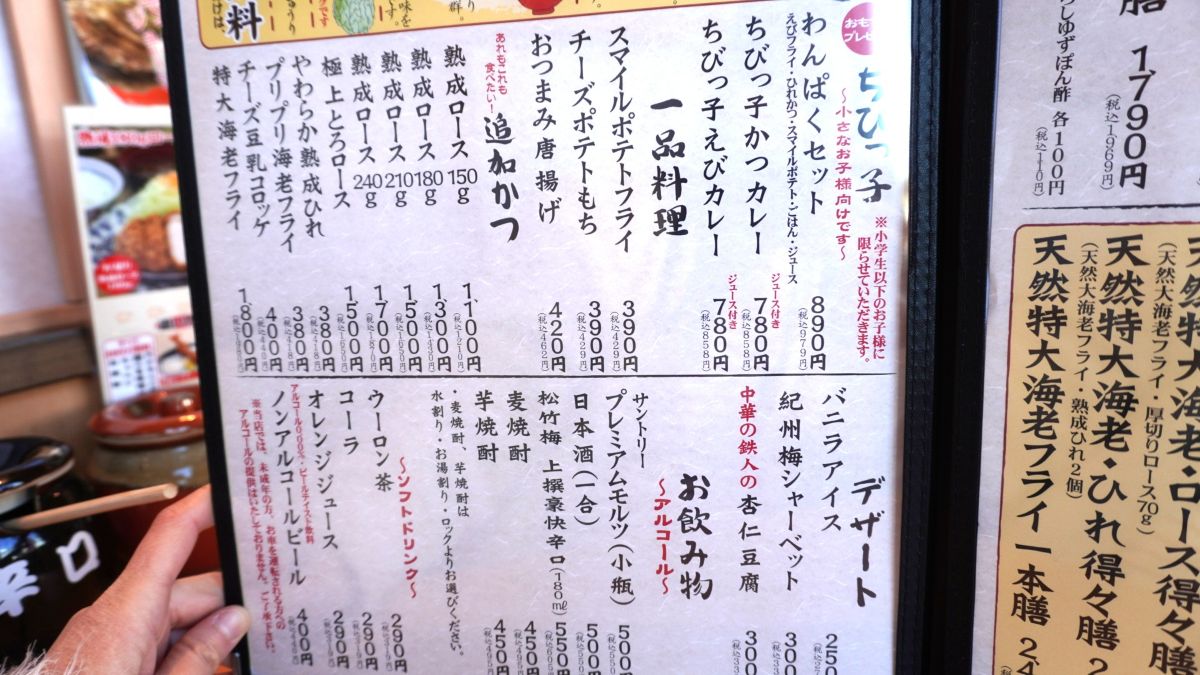 膳 1,790円
(税込1,969円)
らしゆずぽん酢 各100円
(税込110円)
天然特大海老・ロース得々
(天然大海老フライ・厚切りロース70g)
天然特大海老・ひれ得々膳 2
(天然大海老フライ・熟成ひれ2個)
天然特大海老フライ一本膳 2,4
料
ちびっ子
～小さなお子様向けです～
※小学生以下のお子様に
限らせていただきます。
おも
プレ
わんぱくセット 890円
(税込979円)
えびフライ・ひれかつ・スマイルポテト・ごはん・ジュース
ちびっ子かつカレー ジュース付き 780円
(税込858円)
ちびっ子えびカレー ジュース付き 780円
(税込858円)
一品料理
スマイルポテトフライ 390円
(税込429円)
チーズポテトもち 390円
(税込429円)
おつまみ唐揚げ 420円
(税込462円)
あれもこれも
食べたい!
追加かつ
熟成ロース 150g 1,100円
(税込1210円)
熟成ロース 180g 1,300円
(税込1430円)
熟成ロース 210g 1,500円
(税込1650円)
熟成ロース 240g 1,700円
(税込1870円)
極上とろロース 1,500円
(税込1650円)
やわらか熟成ひれ 380円
(税込418円)
プリプリ海老フライ 380円
(税込418円)
チーズ豆乳コロッケ 400円
(税込440円)
特大海老フライ 1,800円
(税込1980円)
デザート
バニラアイス 250
紀州梅シャーベット 300
中華の鉄人の杏仁豆腐 300
お飲み物
～アルコール～
サントリー
プレミアムモルツ(小瓶) 500円
(税込550円)
日本酒(一合) 500円
(税込550円)
松竹梅 上撰豪快辛口(180㎖) 550円
(税込605円)
麦焼酎 450円
(税込495円)
芋焼酎 450円
(税込495円)
・麦焼酎、芋焼酎は
水割り・お湯割り・ロックよりお選びください。
～ソフトドリンク～
ウーロン茶 290円
(税込319円)
コーラ 290円
(税込319円)
オレンジジュース 290円
(税込319円)
アルコール0.00%・ビールテイスト飲料
ノンアルコールビール 400円
(税込440円)
※当店では、未成年の方、お車を運転される方への
アルコールの提供はいたしておりません。ご了承下さい。
辛口